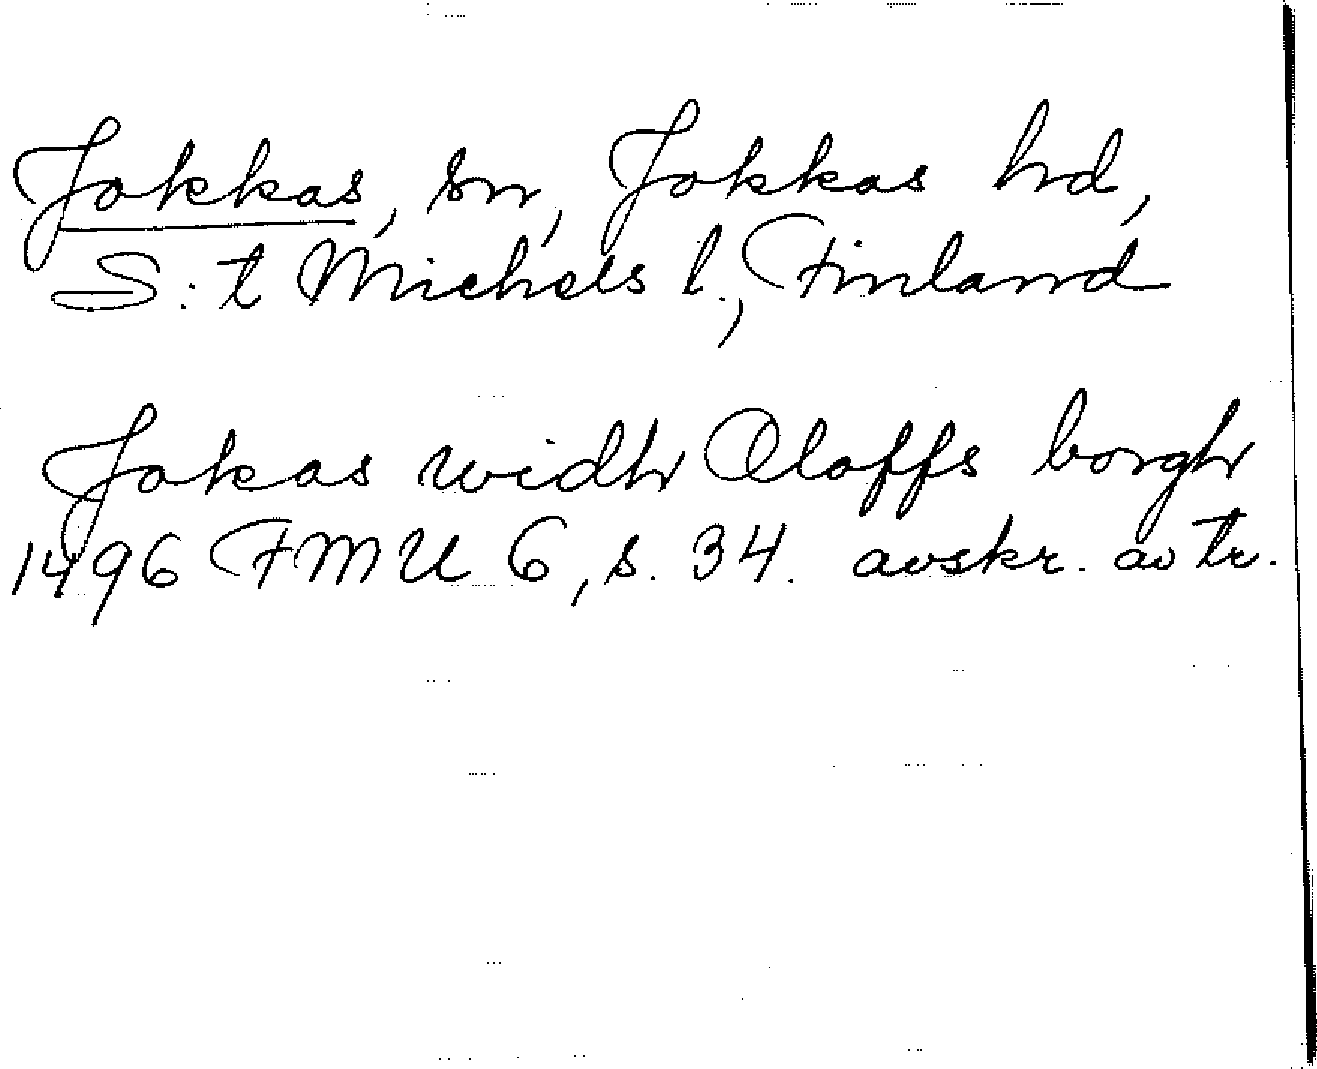 Jokkas, sn, Jokkas hd,
S:t Michels l., Finland
Jokas widh Oloffs borgh
1496 FMU 6, s. 34. avskr. av tr.